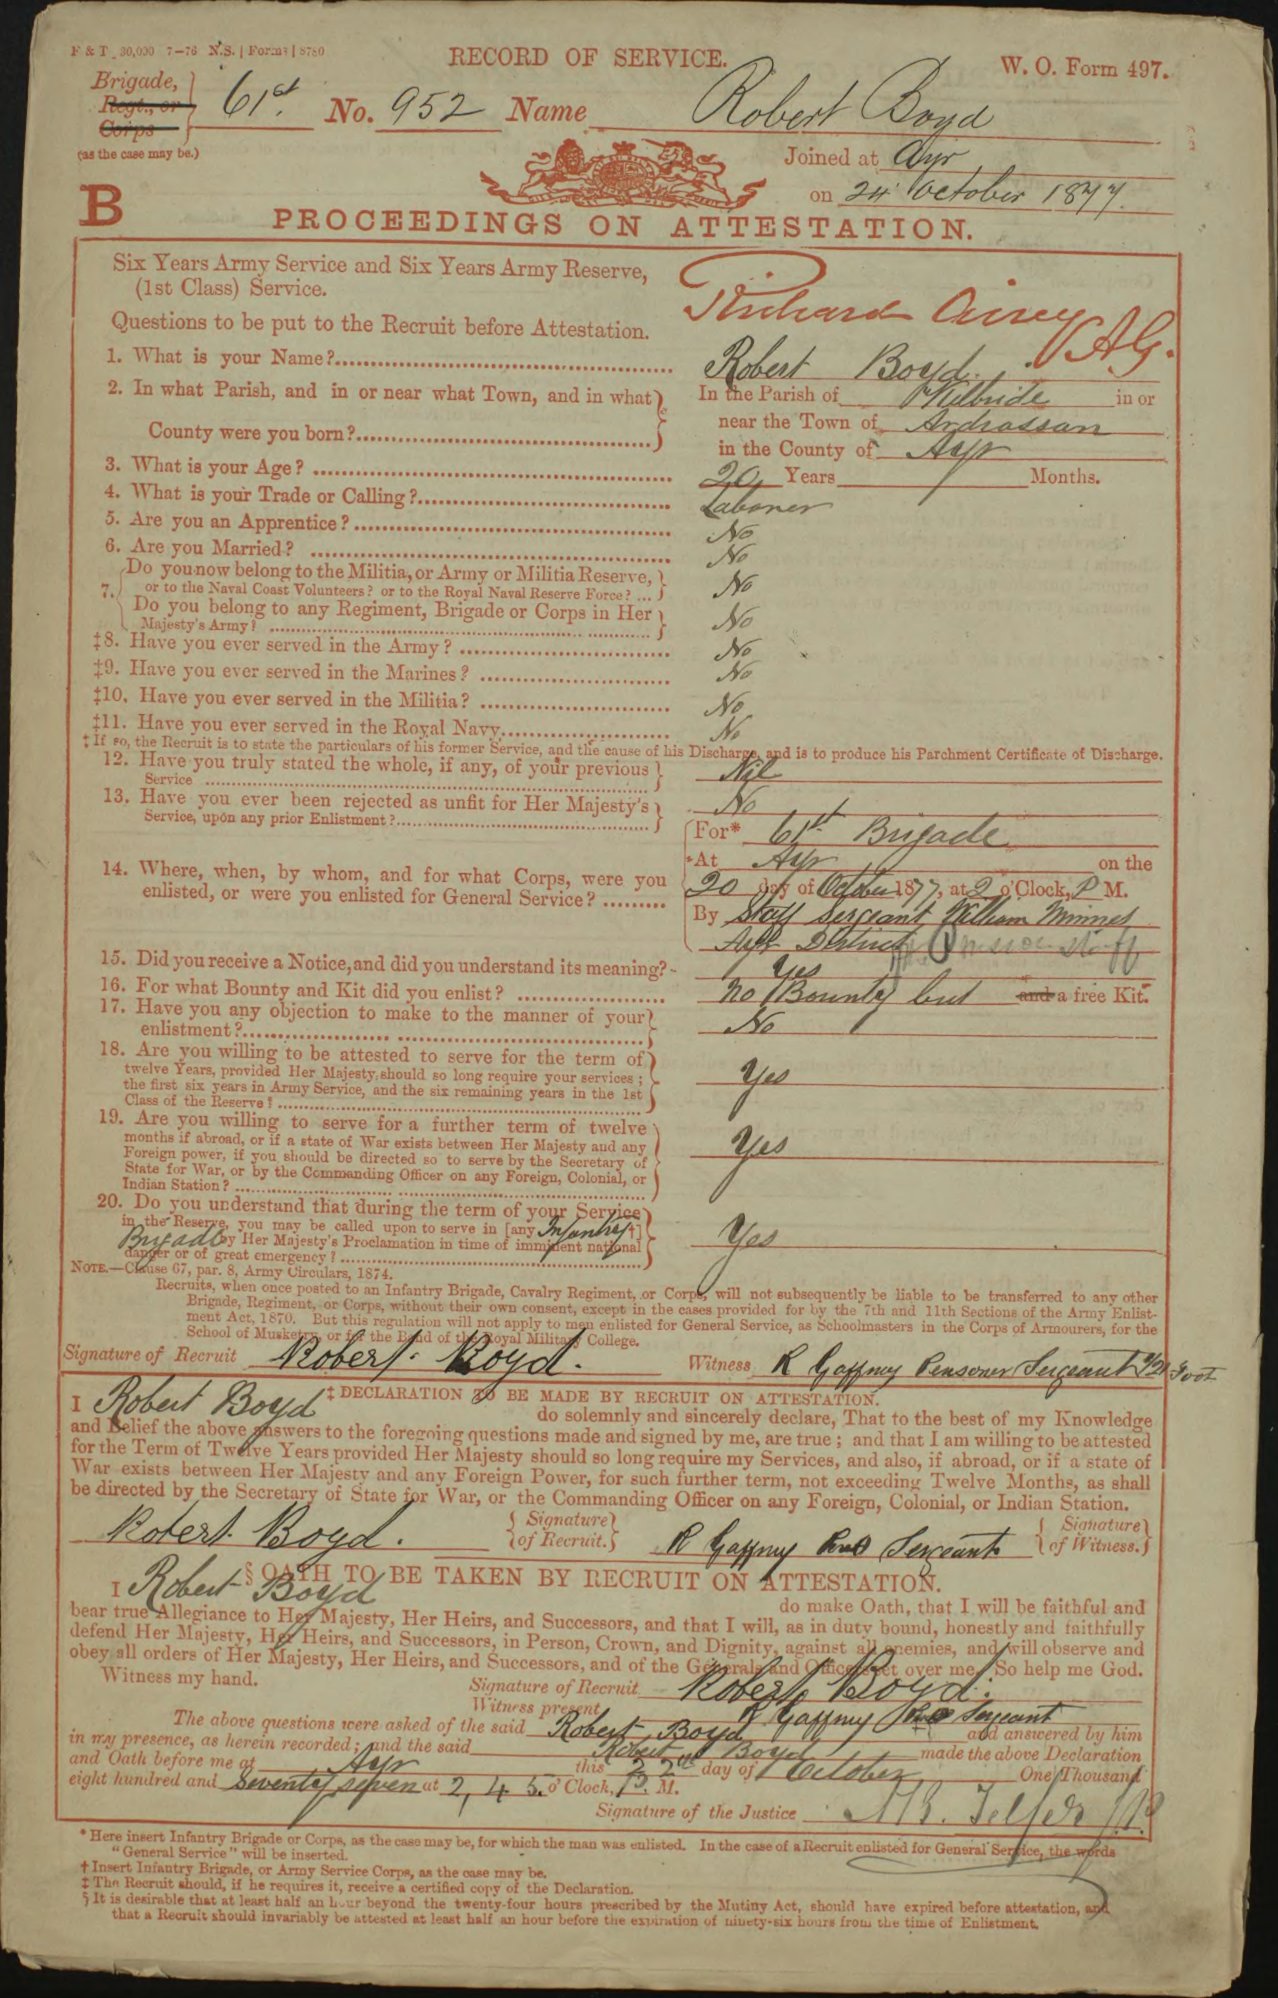 F & T 30,000 7—76 N.S. | Forms | 8780
RECORD OF SERVICE.
W. O. Form 497.
Brigade,
Regt., or
Corps
(as the case may be.)
61st. No. 952 Name Robert Boyd
Joined at Ayr
on 24 October 1877.
B
PROCEEDINGS ON ATTESTATION.
Six Years Army Service and Six Years Army Reserve,
(1st Class) Service.
Richard Airey AG.
Questions to be put to the Recruit before Attestation.
1. What is your Name? Robert Boyd.
2. In what Parish, and in or near what Town, and in what
County were you born?
In the Parish of Kilbride in or
near the Town of Ardrossan
in the County of Ayr
3. What is your Age? 20 Years Months.
4. What is your Trade or Calling? Laborer
5. Are you an Apprentice? No
6. Are you Married? No
7. Do you now belong to the Militia, or Army or Militia Reserve,
or to the Naval Coast Volunteers? or to the Royal Naval Reserve Force? ... No
Do you belong to any Regiment, Brigade or Corps in Her
Majesty's Army? No
‡8. Have you ever served in the Army? No
‡9. Have you ever served in the Marines? No
‡10. Have you ever served in the Militia? No
‡11. Have you ever served in the Royal Navy No
‡ If so, the Recruit is to state the particulars of his former Service, and the cause of his Discharge, and is to produce his Parchment Certificate of Discharge.
12. Have you truly stated the whole, if any, of your previous
Service Nil
13. Have you ever been rejected as unfit for Her Majesty's
Service, upon any prior Enlistment? No
14. Where, when, by whom, and for what Corps, were you
enlisted, or were you enlisted for General Service?
For* 61st Brigade
*At Ayr on the
20 day of October 1877, at 2 o'Clock, P M.
By Staff Sergeant William Minnes
Ayr District Pension Staff
15. Did you receive a Notice, and did you understand its meaning? Yes
16. For what Bounty and Kit did you enlist? no Bounty but and a free Kit.
17. Have you any objection to make to the manner of your
enlistment? No
18. Are you willing to be attested to serve for the term of
twelve Years, provided Her Majesty should so long require your services;
the first six years in Army Service, and the six remaining years in the 1st
Class of the Reserve? Yes
19. Are you willing to serve for a further term of twelve
months if abroad, or if a state of War exists between Her Majesty and any
Foreign power, if you should be directed so to serve by the Secretary of
State for War, or by the Commanding Officer on any Foreign, Colonial, or
Indian Station? Yes
20. Do you understand that during the term of your Service
in the Reserve, you may be called upon to serve in [any Infantry †]
Brigade by Her Majesty's Proclamation in time of imminent national
danger or of great emergency? Yes
NOTE.—Clause 67, par. 8, Army Circulars, 1874.
Recruits, when once posted to an Infantry Brigade, Cavalry Regiment, or Corps, will not subsequently be liable to be transferred to any other
Brigade, Regiment, or Corps, without their own consent, except in the cases provided for by the 7th and 11th Sections of the Army Enlist-
ment Act, 1870. But this regulation will not apply to men enlisted for General Service, as Schoolmasters in the Corps of Armourers, for the
School of Musketry, or for the Band of the Royal Military College.
Signature of Recruit Robert Boyd. Witness R Gaffney Pensoner Sergeant 2/21 Foot
‡ DECLARATION TO BE MADE BY RECRUIT ON ATTESTATION.
I Robert Boyd do solemnly and sincerely declare, That to the best of my Knowledge
and Belief the above answers to the foregoing questions made and signed by me, are true; and that I am willing to be attested
for the Term of Twelve Years provided Her Majesty should so long require my Services, and also, if abroad, or if a state of
War exists between Her Majesty and any Foreign Power, for such further term, not exceeding Twelve Months, as shall
be directed by the Secretary of State for War, or the Commanding Officer on any Foreign, Colonial, or Indian Station.
Robert Boyd. Signature of Recruit. R Gaffney Sergeant Signature of Witness.
§ OATH TO BE TAKEN BY RECRUIT ON ATTESTATION.
I Robert Boyd do make Oath, that I will be faithful and
bear true Allegiance to Her Majesty, Her Heirs, and Successors, and that I will, as in duty bound, honestly and faithfully
defend Her Majesty, Her Heirs, and Successors, in Person, Crown, and Dignity, against all enemies, and will observe and
obey all orders of Her Majesty, Her Heirs, and Successors, and of the Generals and Officers set over me. So help me God.
Witness my hand. Signature of Recruit Robert Boyd.
Witness present R Gaffney Sergeant
The above questions were asked of the said Robert Boyd and answered by him
in my presence, as herein recorded; and the said Robert Boyd made the above Declaration
and Oath before me at Ayr this 22nd day of October One Thousand
eight hundred and Seventy seven at 2, 45. o'Clock, P. M.
Signature of the Justice M B. Telfer J.P.
* Here insert Infantry Brigade or Corps, as the case may be, for which the man was enlisted. In the case of a Recruit enlisted for General Service, the words
"General Service" will be inserted.
† Insert Infantry Brigade, or Army Service Corps, as the case may be.
‡ The Recruit should, if he requires it, receive a certified copy of the Declaration.
§ It is desirable that at least half an hour beyond the twenty-four hours prescribed by the Mutiny Act, should have expired before attestation, and
that a Recruit should invariably be attested at least half an hour before the expiration of ninety-six hours from the time of Enlistment.